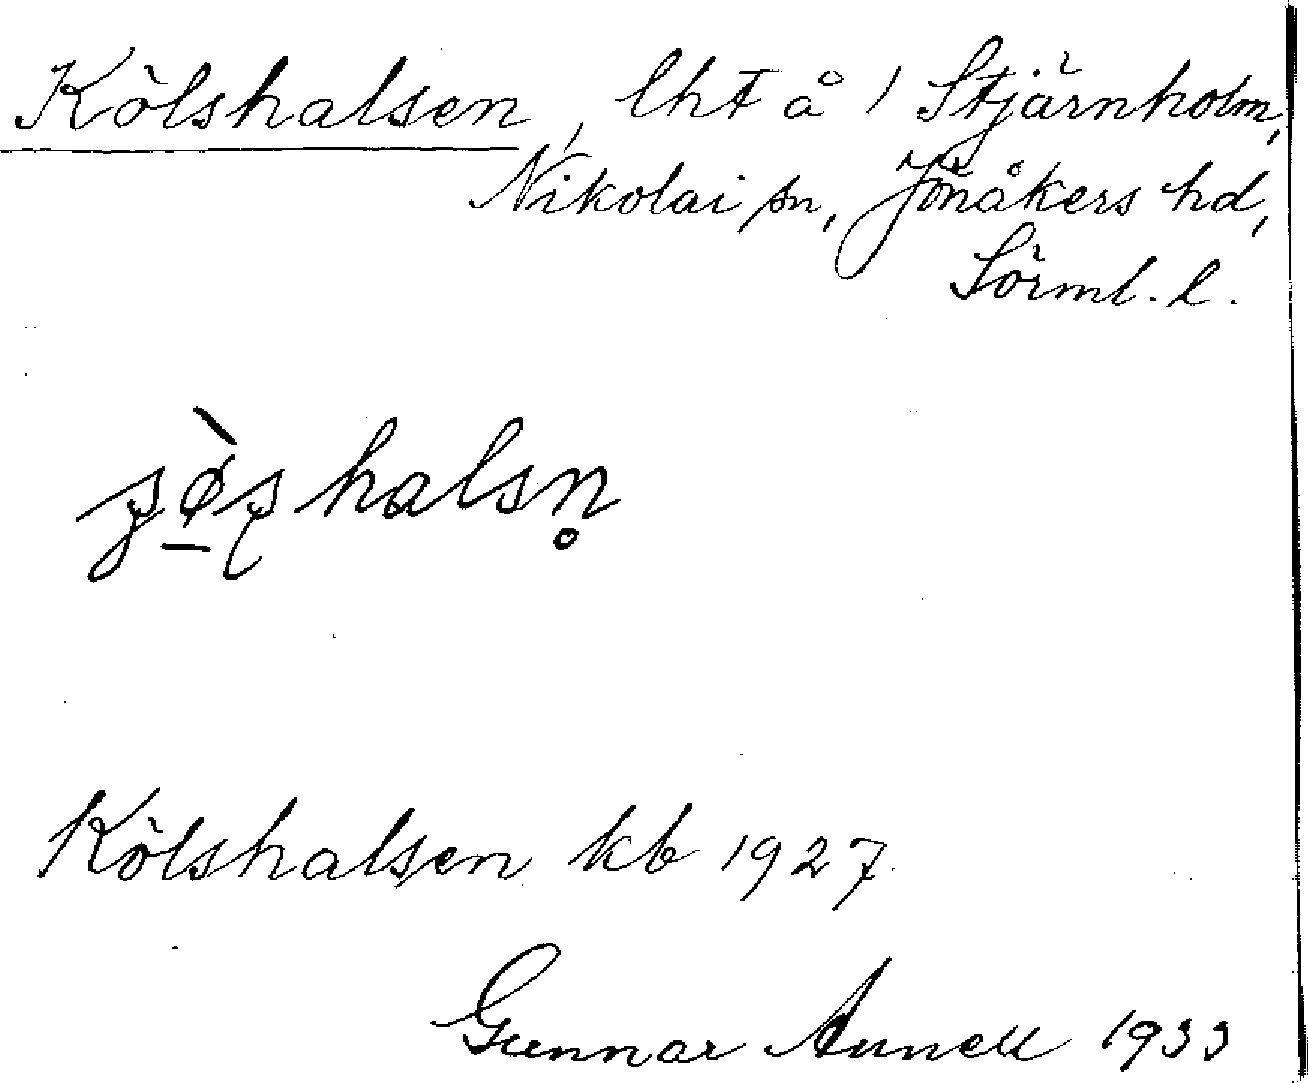 Kölshalsen, lht å 1 Stjärnholm,
Nikolai sn, Jönåkers hd,
Sörml. l.
halsn̥
Kölshalsen kb 1927.
Gunnar Aunell 1933